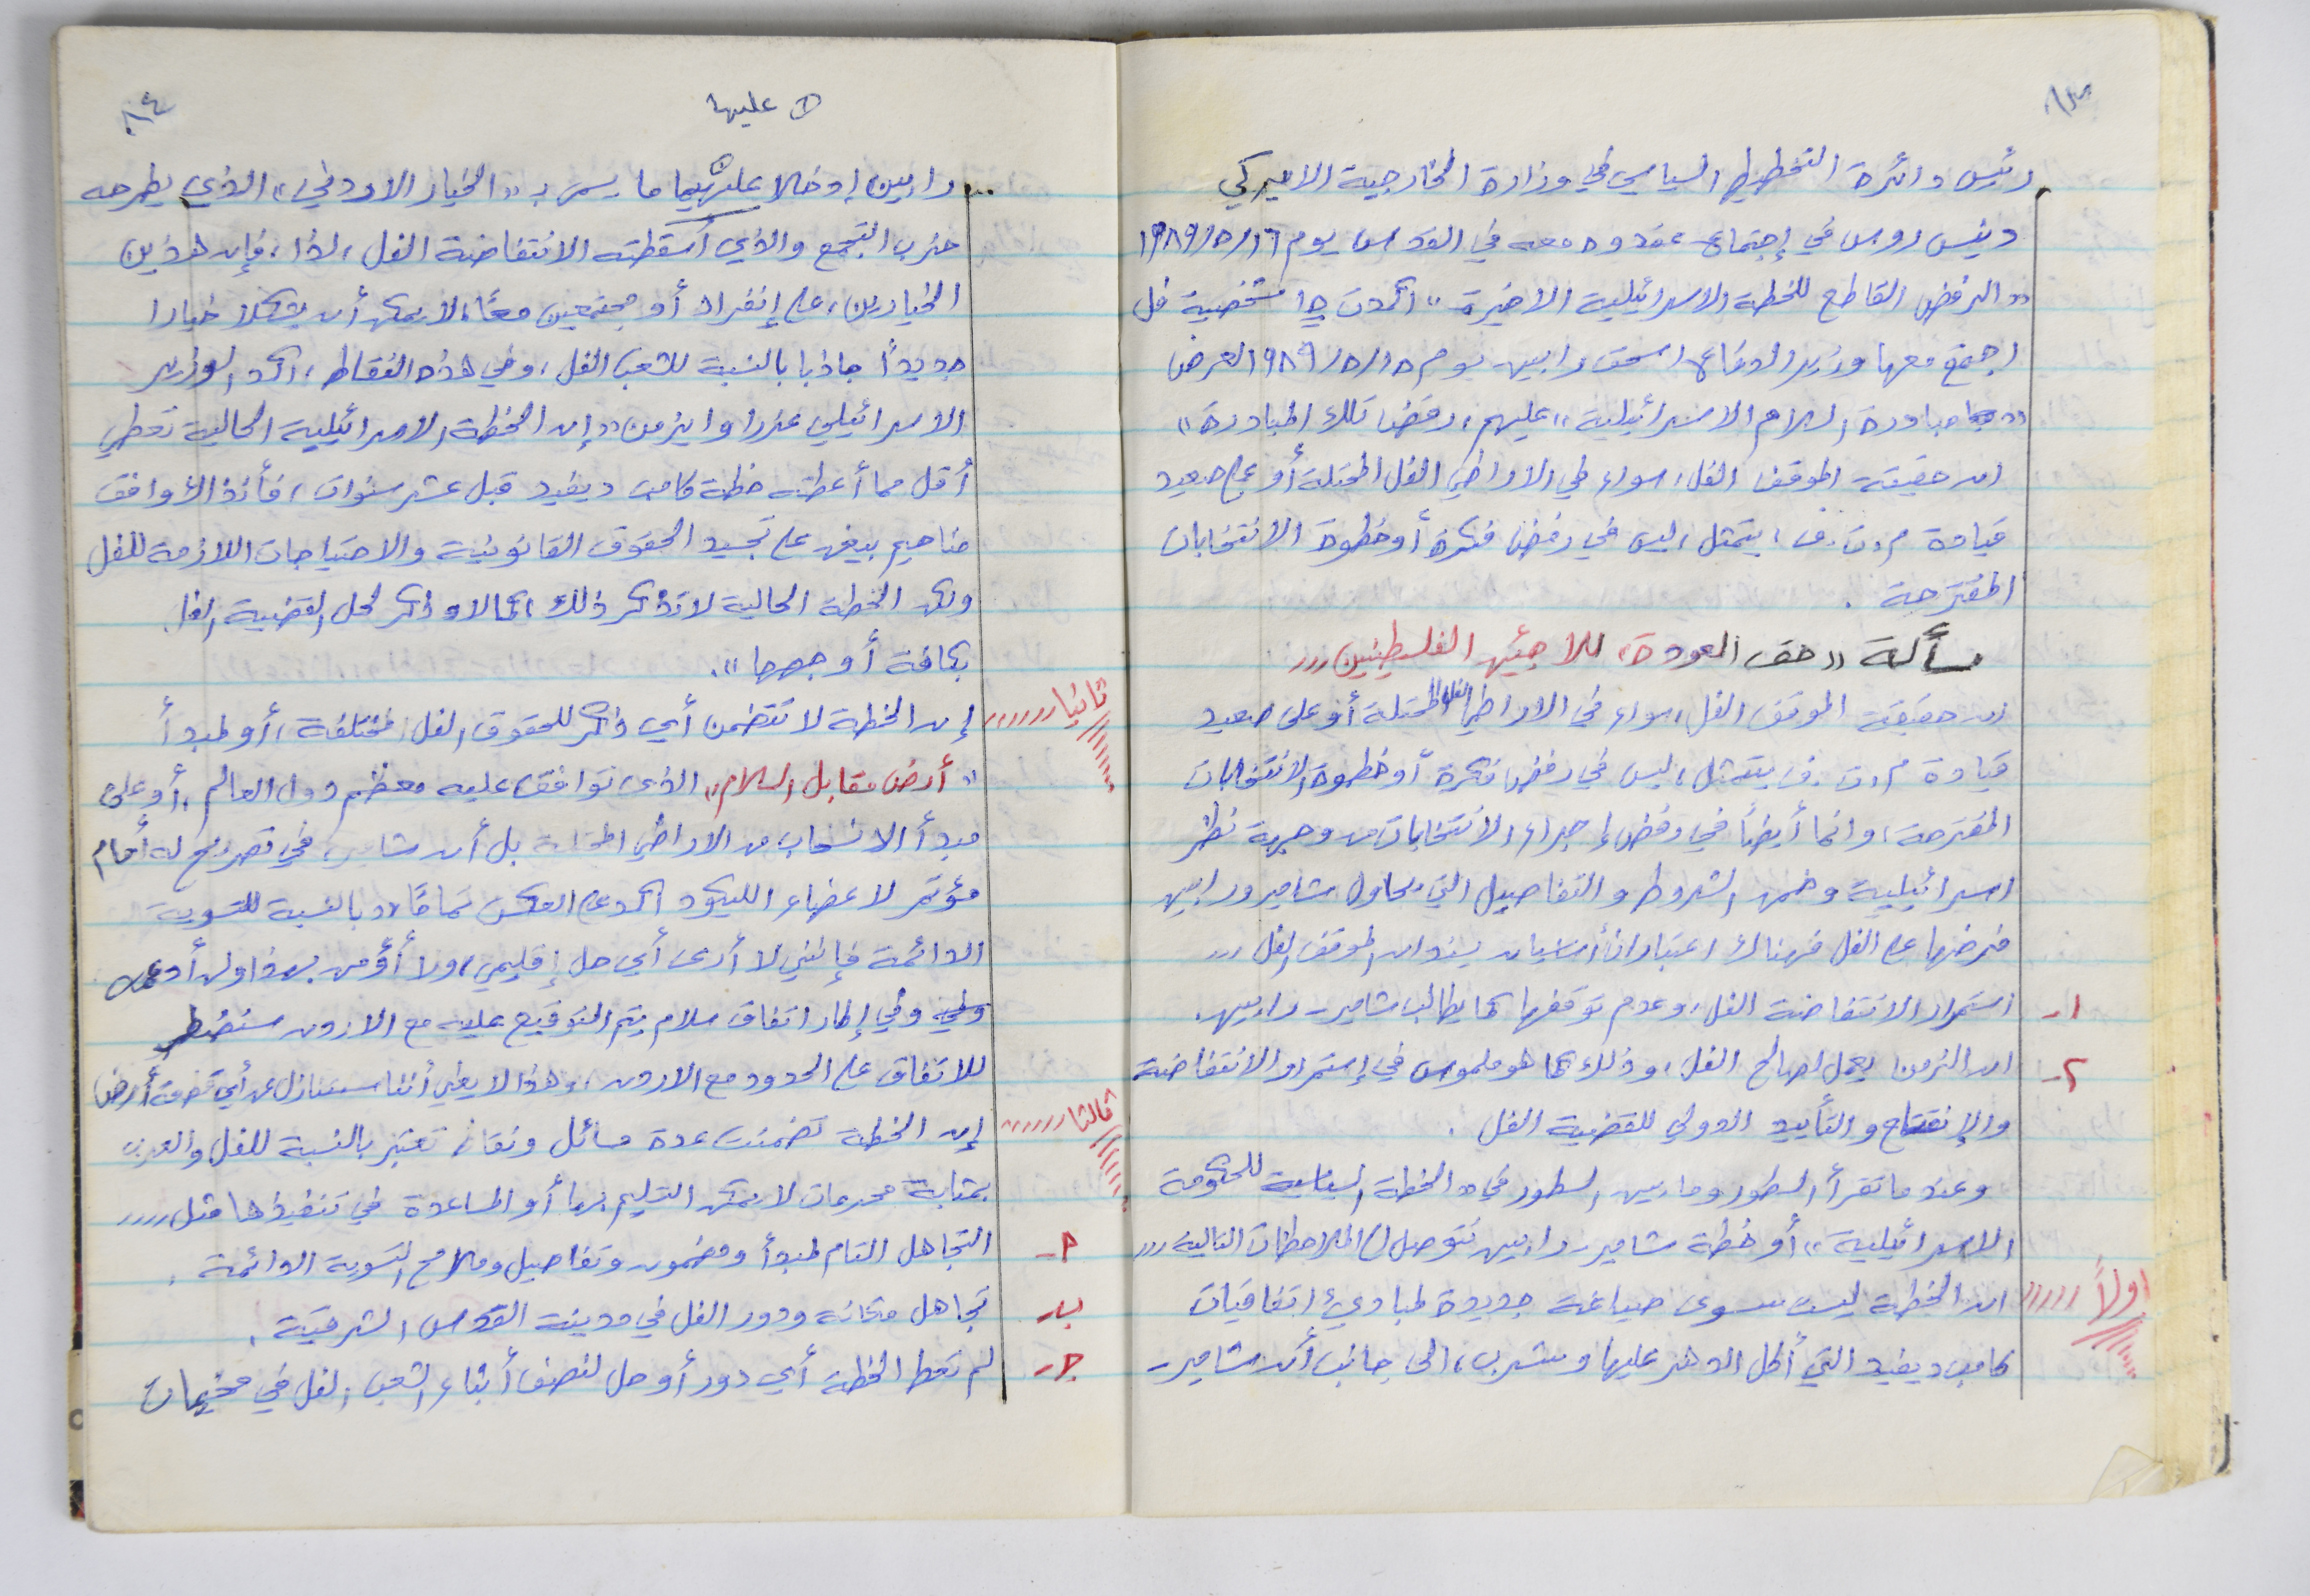 ٨٣
رئيس دائرة التخطيط السياسي في وزارة الخارجية الاميركي
دينس روس في إجتماع عقدوه معه في القدس يوم ١٩٨٩/٥/١٦
«الرفض القاطع للخطة الاسرائيلية الاخيرة» اكدت شخصية فل
اجتمع معها وزير الدفاع اسحق رابين يوم ١٩٨٩/٥/١٥ لعرض
«مبادرة السلام الاسرائيلية» عليهم، رفض تلك المبادرة»
ان حقيقة الموقف الفل، سواء في الاراضي الفل المحتلة أو على صعيد
قيادة م.ت.ف، يتمثل، ليس في رفض فكرة أو خطوة الانتخابات
المقترحة.
مسألة «حق العودة» للاجئين الفلسطينين ,,,
ان حقيقة الموقف الفل، سواء في الاراضي الفل المحتلة أو على صعيد
قيادة م.ت.ف يتمثل، ليس في رفض فكرة أو خطوة الانتخابات
المقترحة، وانما أيضاً في رفض إجراء الانتخابات من وجهة نظر
اسرائيلية وضمن الشروط والتفاصيل التي يحاول شامير ورابين
فرضها على الفل فهناك اعتباران أساسيان يسندان الموقف الفل ,,,
١- استمرار الانتفاضة الفل، وعدم توقفها كما يطالب شامير - رابين.
٢- ان الزمن يعمل لصالح الفل، وذلك كما هو ملموس في إستمرار الانتفاضة
والإنفتاح والتأييد الدولي للقضية الفل.
وعندما تقرأ السطور وما بين السطور في «الخطة السياسية للحكومة
الاسرائيلية» أو خطة شامير - رابين نتوصل الى الملاحظات التالية ,,,
اولاً ,,,,, ان الخطة ليست سوى صياغة جديدة لمبادئ اتفاقيات
كامب ديفيد التي أكل الدهر عليها وشرب، الى جانب أن شامير -
٨٤
① عليها
... رابين إدخلا عليهما ما يسمى بـ «الخيار الاردني» الذي يطرحه
حزب التجمع والذي أسقطته الانتفاضة الفل، لذا، فإن هذين
الخيارين، على إنفراد أو مجتمعين معاً، لا يمكن أن يشكلا خيارا
جديداً جاذبا بالنسبة للشعب الفل، وفي هذه النقاط، اكد الوزير
الاسرائيلي عزرا وايزمن «إن الخطة الاسرائيلية الحالية تعطي
أقل مما أعطته خطة كامب ديفيد قبل عشر سنوات، فأنذالأ وافق
مناحيم بيغن على تجسيد الحقوق القانونية والاحتياجات اللازمة للفل
ولكن الخطة الحالية لا تذكر ذلك، كما لا و ذكر لحل القضية الفل.
بكافة أوجهها».
ثانيا ,,,,,, إن الخطة لا تتضمن أي ذكر للحقوق الفل المختلفة، أو لمبدأ
«أرض مقابل السلام» الذي توافق عليه معظم دول العالم، أو على
مبدأ الانسحاب من الاراضي المحتلة بل أن شامير، في تصريح له أمام
مؤتمر لاعضاء الليكود أكد على العكس تماماً «بالنسبة للتسوية
الدائمة فإنني لا أرى أي حل إقليمي، ولا أؤمن بهذا ولن أدعمه
وفي إطار اتفاق سلام يتم التوقيع عليه مع الاردن سنضطر
للاتفاق على الحدود مع الاردن، وهذا لا يعني أننا سنتنازل عن أي قطعة أرض
ثالثا ,,,,,, إن الخطة تضمنت عدة مسائل ونقاط تعتبر بالنسبة للفل والعرب
بمثابة محرمات لا يمكن التسليم بها أو المساعدة في تنفيذها مثل ,,,,
أ- التجاهل التام لمبدأ ومضمون وتفاصيل وملامح التسوية الدائمة.
ب- تجاهل مكانة ودور الفل في مدينة القدس الشرقية.
ج- لم تعط الخطة أي دور أو حل لنصف أبناء الشعب الفل في مخيمات